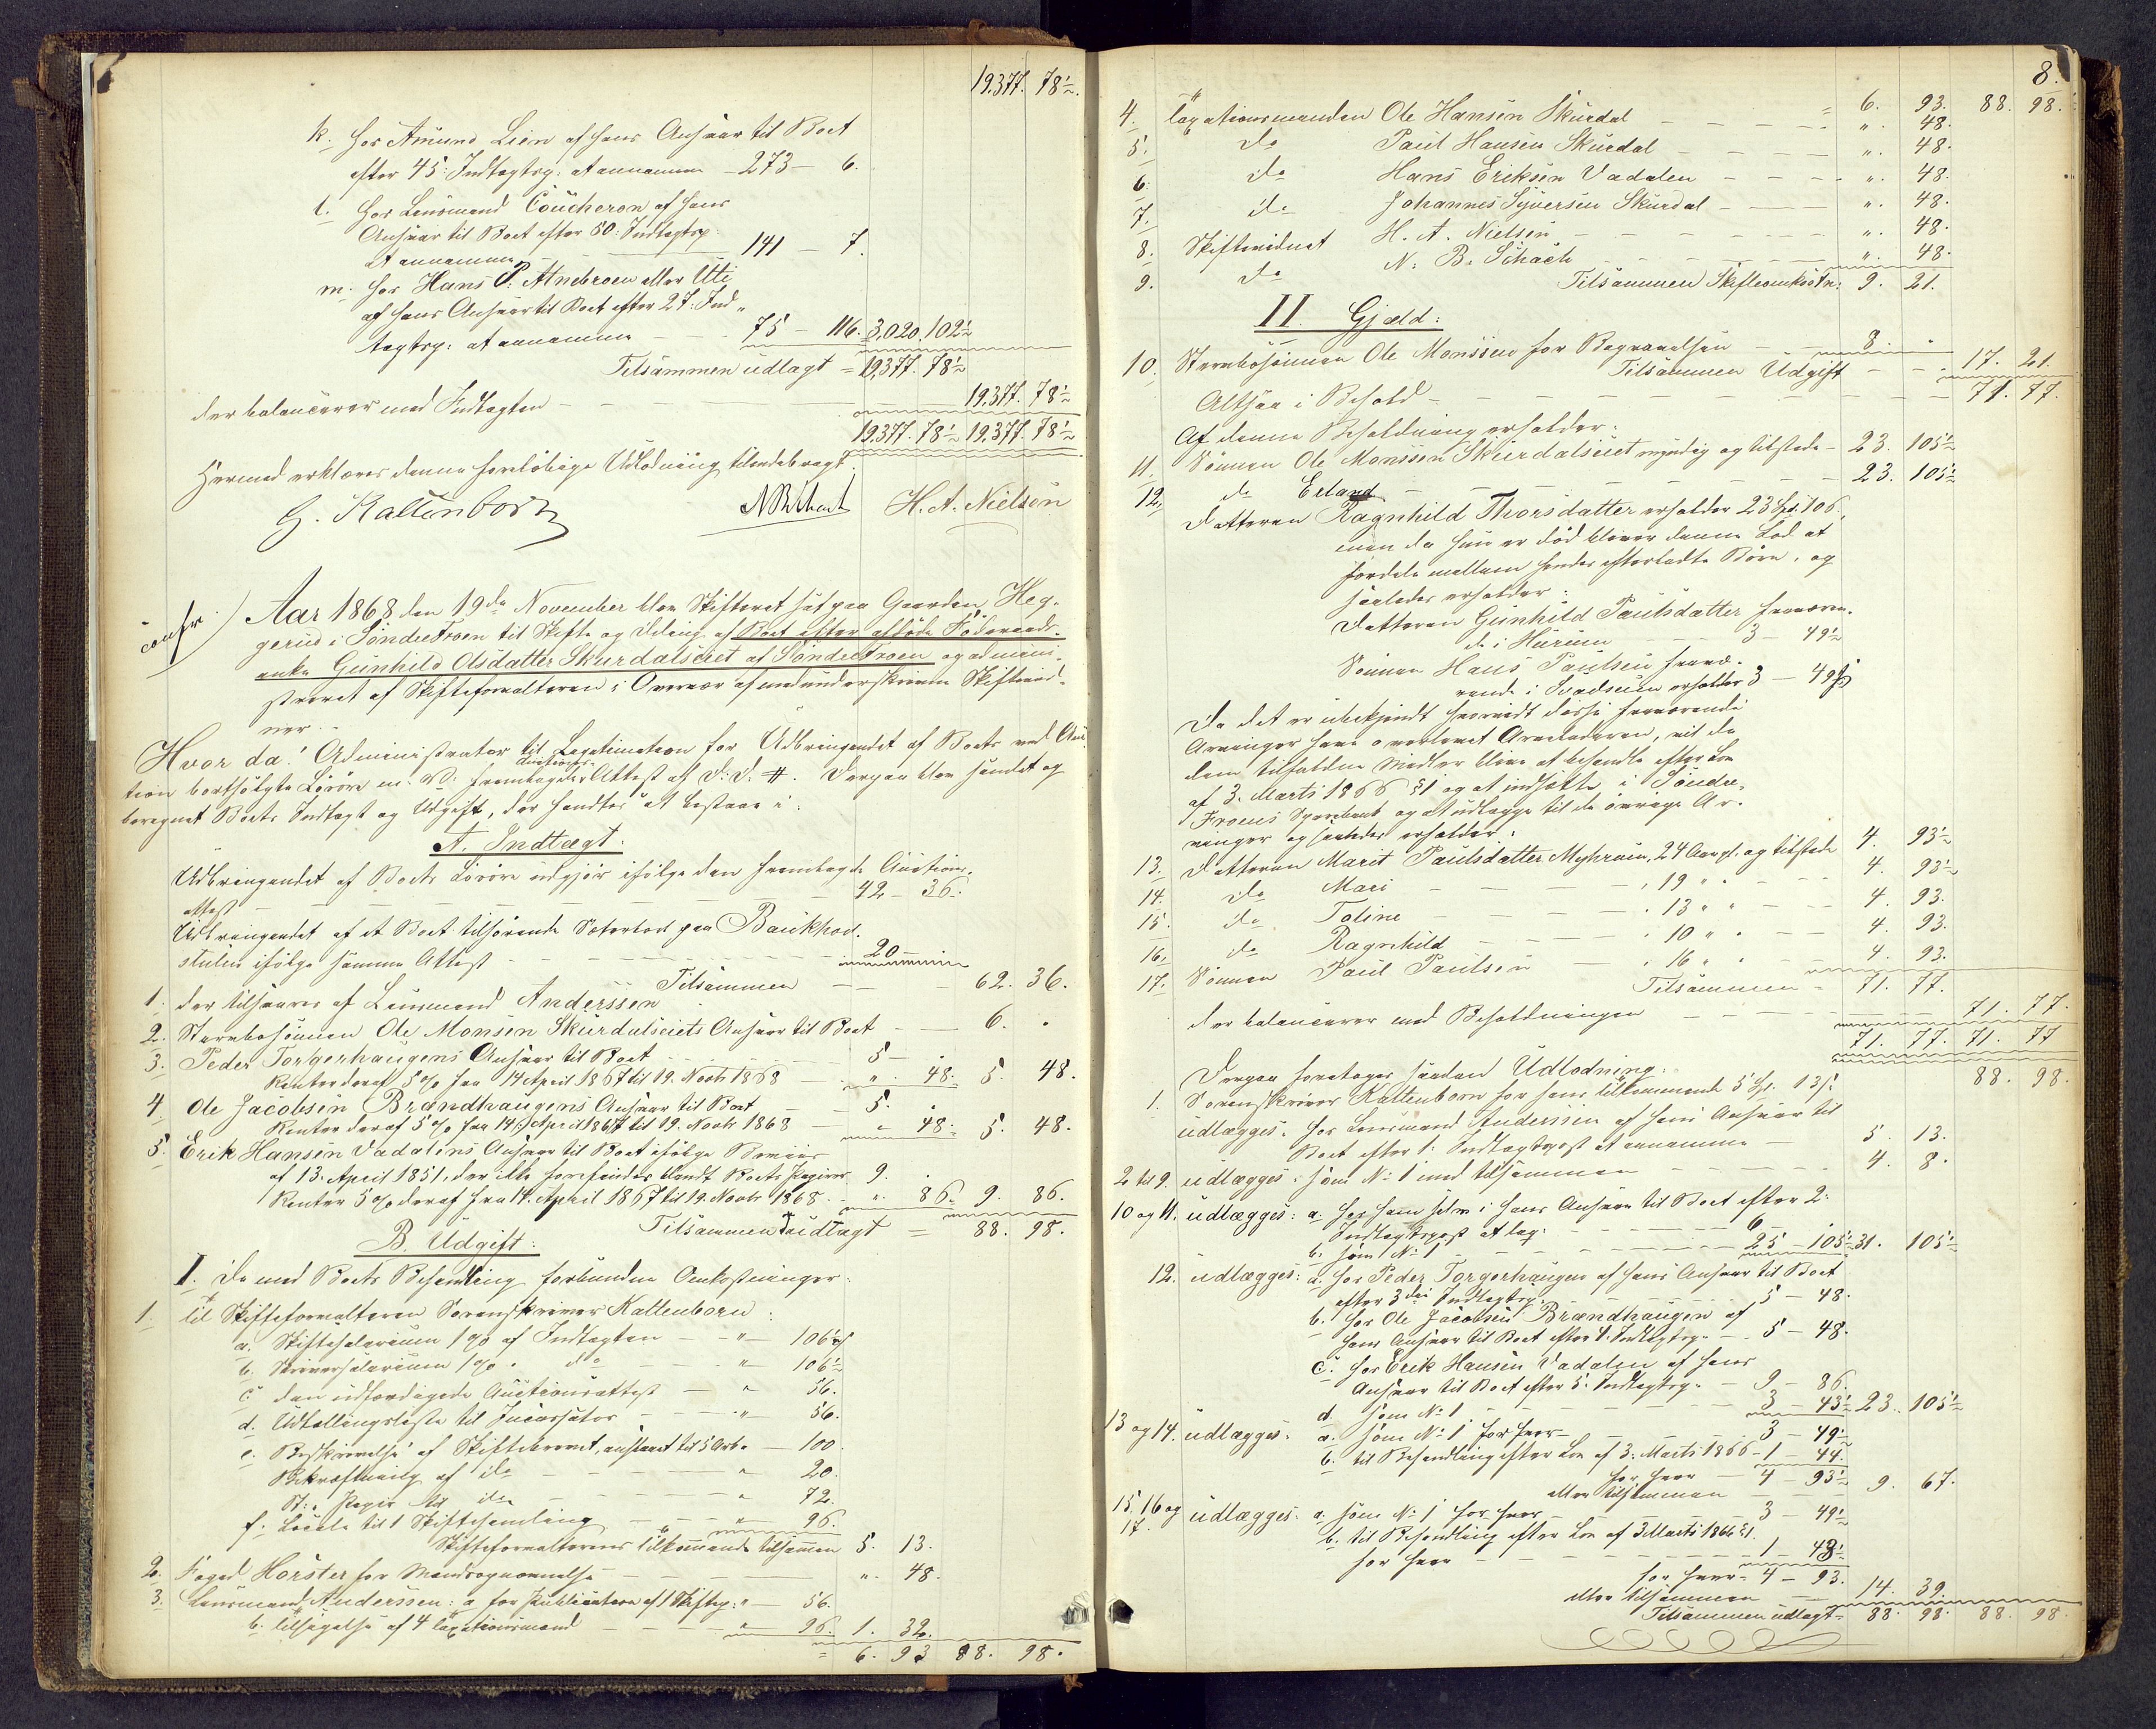 19,377. 78½.
k. hos Amund Lien af hans Ansvar til Boet
efter 45. Indtægtsp. at annamme - 273 - 6.
l. hos Lensmand Coucheron af hans
Ansvar til Boet efter 50. Indtægtsp.
at annamme - 141 7.
m. hos Hans P. Alnebroen eller Uti
af hans Ansvar til Boet efter 27. Ind-
tægtsp. at annamme - - 75 - 116. 3,020. 102½
Tilsammen udlagt = 19,377. 78½
der balancerer med Indtægten - 19,377. 78½
19,377. 78½ 19,377. 78½
Hermed erklæres denne foreløbige Udlodning tilendebragt.
G. Kaltenborn H. A. Nielsen
Aar 1868 den 19de November blev Skifteret sat paa Gaarden Heg-
gerud i Søndre Froen til Skifte og Deling af Boet efter afdøde Føderaads-
enke Gunhild Olsdatter Skurdalseiet af Søndre Froen og admini-
streret af Skifteforvalteren i Overvær af medunderskrevne Skiftevid-
ner.
Hvor da: Administrator til Legitimation for Udbringendet af Boets ved Auc-
tion bortsolgte Løsøre m. V. fremlagde Auctions- Attest af D: D: #. Derpaa blev samlet og
beregnet Boets Indtægt og Udgift, der fandtes at bestaae i:
A. Indtægt:
Udbringendet af Boets Løsøre udgjør ifølge den fremlagte Auctions-
attest - 42 - 36.
Udbringendet af et Boet tilhørende Sæterbod paa Baukhol-
stulen ifølge samme Attest - 20 -
Tilsammen - 62. 36.
1. der tilsvares af Lensmand Anderssen
2. Stervbosønnen Ole Monsen Skurdalseiets Ansvar til Boet - 6. "
3. Peder Torgerhaugens Ansvar til Boet - 5 -
Renter deraf 5 % fra 14 April 1867 til 19. Novb 1868 - " 48. 5. 48.
4 Ole Jacobsen Brændhaugens Ansvar til Boet - 5. -
Renter deraf 5 % fra 14 April 1867 til 19. Novb 1868 - " 48. 5. 48.
5. Erik Hansen Vadalens Ansvar til Boet ifølge Beviis
af 13. April 1851, der ikke forefindes blandt Boets Papirer 9. .
Renter 5 % deraf fra 14. April 1867 til 19. Novb 1868. " 86. 9. 86.
Tilsammen Indtægt = 88. 98.
B. Udgift:
I. De med Boets Behandling forbundne Omkostninger:
1. til Skifteforvalteren Sorenskriver Kaltenborn:
a. Skiftesalarium 1 % af Indtægten - " 106½
b. Skriversalarium 1 % " do - " 106½
c. den udfærdigede Auctionsattest - " 56.
d. Udtællingsliste til Incassator - " 56.
e. Beskrivelse af Skiftebrevet, anslaaet til 5 Ark " 100.
Bekræftning af do - " 20.
St: Papir til do - " 72.
f. Locale til 1 Skiftesamling - " 96.
Skifteforvalterens Tilkommende tilsammen 5. 13.
2. Foged Hørster for Mandsopnævnelse - " 48.
3. Lensmand Anderssen: a for Publication af 1 Skiftep: " 56.
b. tilsigelse af 4 Taxationsmænd - " 96. 1. 32.
= 6. 93 88. 98.
8.
= 6. 93. 88. 98.
4. Taxationsmanden Ole Hansen Skurdal - ". 48.
5. do Paul Hansen Skurdal - ". 48.
6. do Hans Eriksen Vadalen - ". 48.
7. do Johannes Syversen Skurdal - ". 48.
8. Skiftevidnet H. A. Nielsen - ". 48.
9. do N. B. Schach - ". 48.
Tilsammen Skifteomkostn: 9. 21.
II. Gjæld:
10. Stervbosønnen Ole Monssen for Begravelsen - 8 "
Tilsammen Udgift - 17. 21.
Altsaa i Behold - 71. 77.
Af denne Beholdning erholder:
11. Sønnen Ole Monssen Skurdalseiet myndig og tilstede - 23. 105½
12. do Erland - 23. 105½
Datteren Ragnhild Thorsdatter erholder 23 Spd. 106,
men da hun er død bliver denne Lod at
fordele mellem hendes efterladte Børn, og
saaledes erholder:
Datteren Gunhild Paulsdatter fraværen-
de i Hurum - 3 - 49½
Sønnen Hans Paulsen fravæ-
rende i Svadsum erholder 3 - 49½
Da det er ubekjendt hvorvidt disse fraværende
Arvinger have overlevet Arveladeren, vil de
dem tilfaldne Midler blive at behandle efter Lov
af 3. Marts 1866 § 1 og at indsætte i Søndre
Froens Sparebank og at udlægge til de øvrige Ar-
vinger og saaledes erholder:
13. Datteren Marit Paulsdatter Myhrum, 24 Aar gl. og tilstede 4. 93½
14. do Mari - " 19 " " - 4. 93½
15. do Toline - " 13 " " - 4. 93.
16. do Ragnhild - " 10 " " - 4. 93.
17. Sønnen Paul Paulsen - " 16 " " - 4. 93.
Tilsammen = 71. 77.
der balancerer med Beholdningen - 71. 77.
71. 77. 71. 77
Derpaa foretages saadan Udlodning: 88. 98.
1. Sorenskriver Kaltenborn for hans tilkommende 5 Spd. 13 s.
udlægges: hos Lensmand Anderssen af hans Ansvar til
Boet efter 1. Indtægtspost at annamme - 5. 13.
2 til 9. udlægges: som No 1 med tilsammen - 4. 8.
10 og 11. udlægges: a. hos ham selv i hans Ansvar til Boet efter 2.
Indtægtspost at tag: - 6 -
b. som No 1 - 25 - 105½ 31. 105½
12. udlægges: a. hos Peder Torgerhaugen af hans Ansvar til Boet
efter 3die Indtægtsp. - 5 - 48.
b. hos Ole Jacobsen Brændhaugen af
hans Ansvar til Boet efter 4. Indtægtsp. - 5 - 48.
c. hos Erik Hansen Vadalen af hans
Ansvar til Boet efter 5. Indtægtsp. - 9 - 86.
d. som No 1 - 3 - 43½ 23. 105½
13 og 14. udlægges: a. som No 1 for hver - 3 - 49½
b. til Behandling efter Lov af 3. Marts 1866 - 1 - 44.
for hver - 4 - 93½
eller tilsammen - 9. 67.
15. 16 og 17. udlægges: a. som No 1 for hver - 3 - 49½
b. til Behandling efter Lov af 3 Marts 1866 § 1.
for hver - 1 - 43½
for hver = 4 - 93.
eller tilsammen - 14. 39.
Tilsammen udlagt = 88. 98. 88. 98.